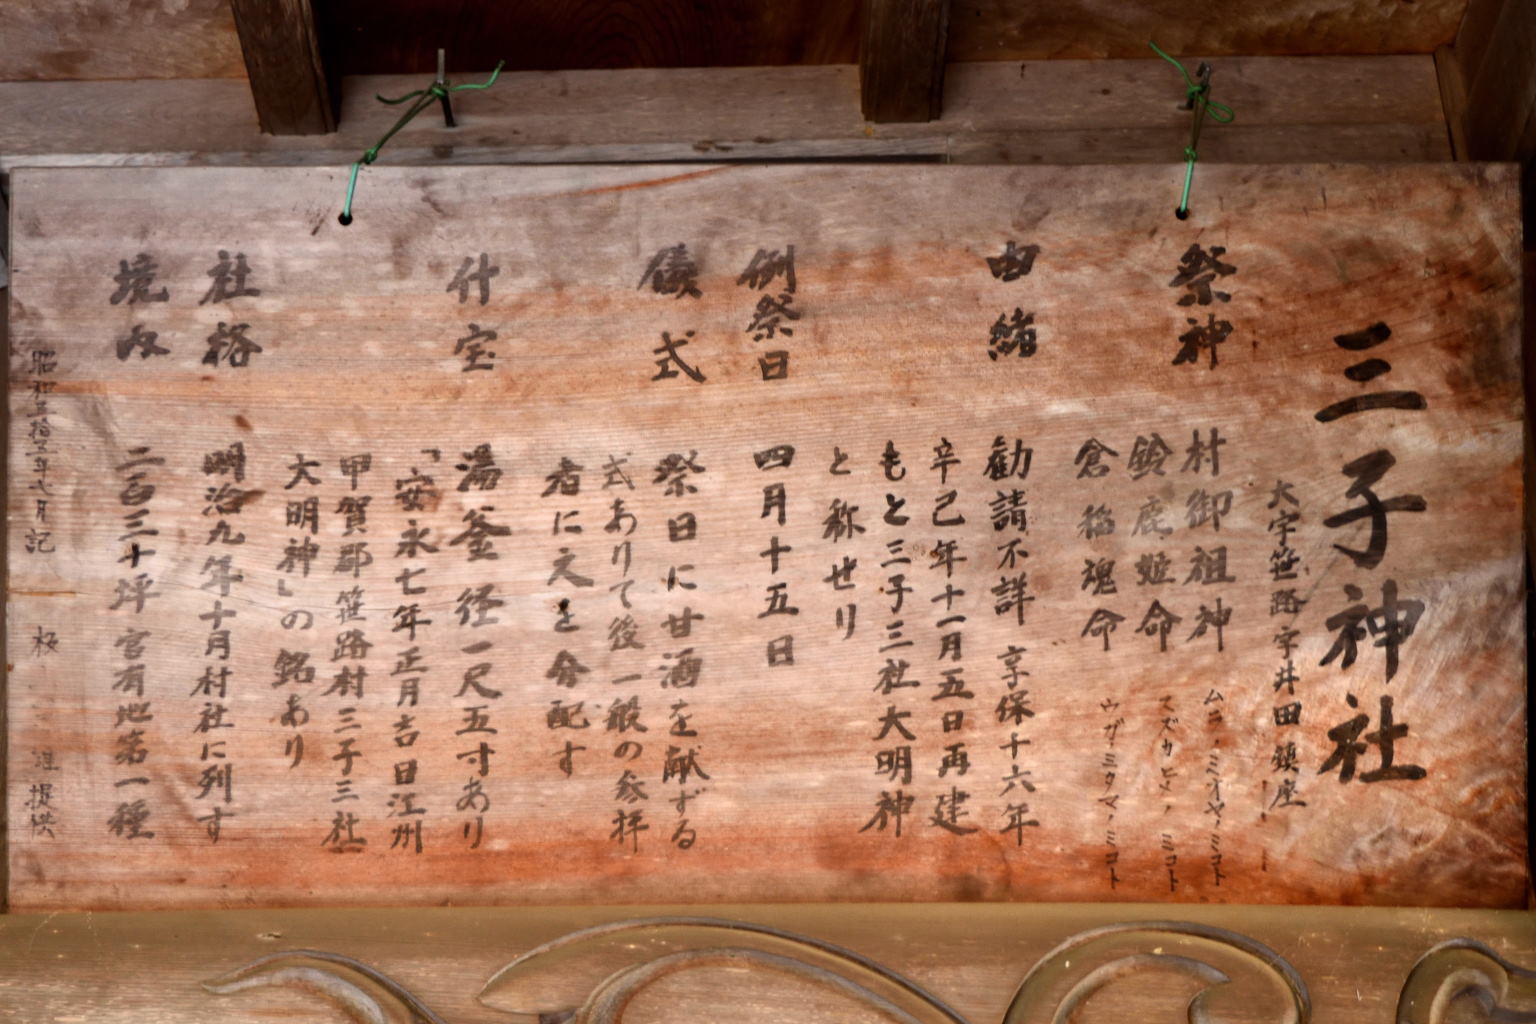 三子神社
大字笹路字井田鎮座
祭神
村御祖神
ムラノミオヤノミコト
鈴鹿姫命
スズカヒメノミコト
倉稲魂命
ウガノミタマノミコト
由緒
勧請不詳 享保十六年
辛己年十一月五日再建
もと三子三社大明神
と称せり
例祭日
四月十五日
儀式
祭日に甘酒を献ずる
式ありて後一般の参拝
者に之を分配す
什宝
湯釜 径一尺五寸あり
「安永七年正月吉日江州
甲賀郡笹路村三子三社
大明神」の銘あり
社格
明治九年十月村社に列す
境内
二百三十坪 官有地第一種
昭和五拾
年
月記
板
提供